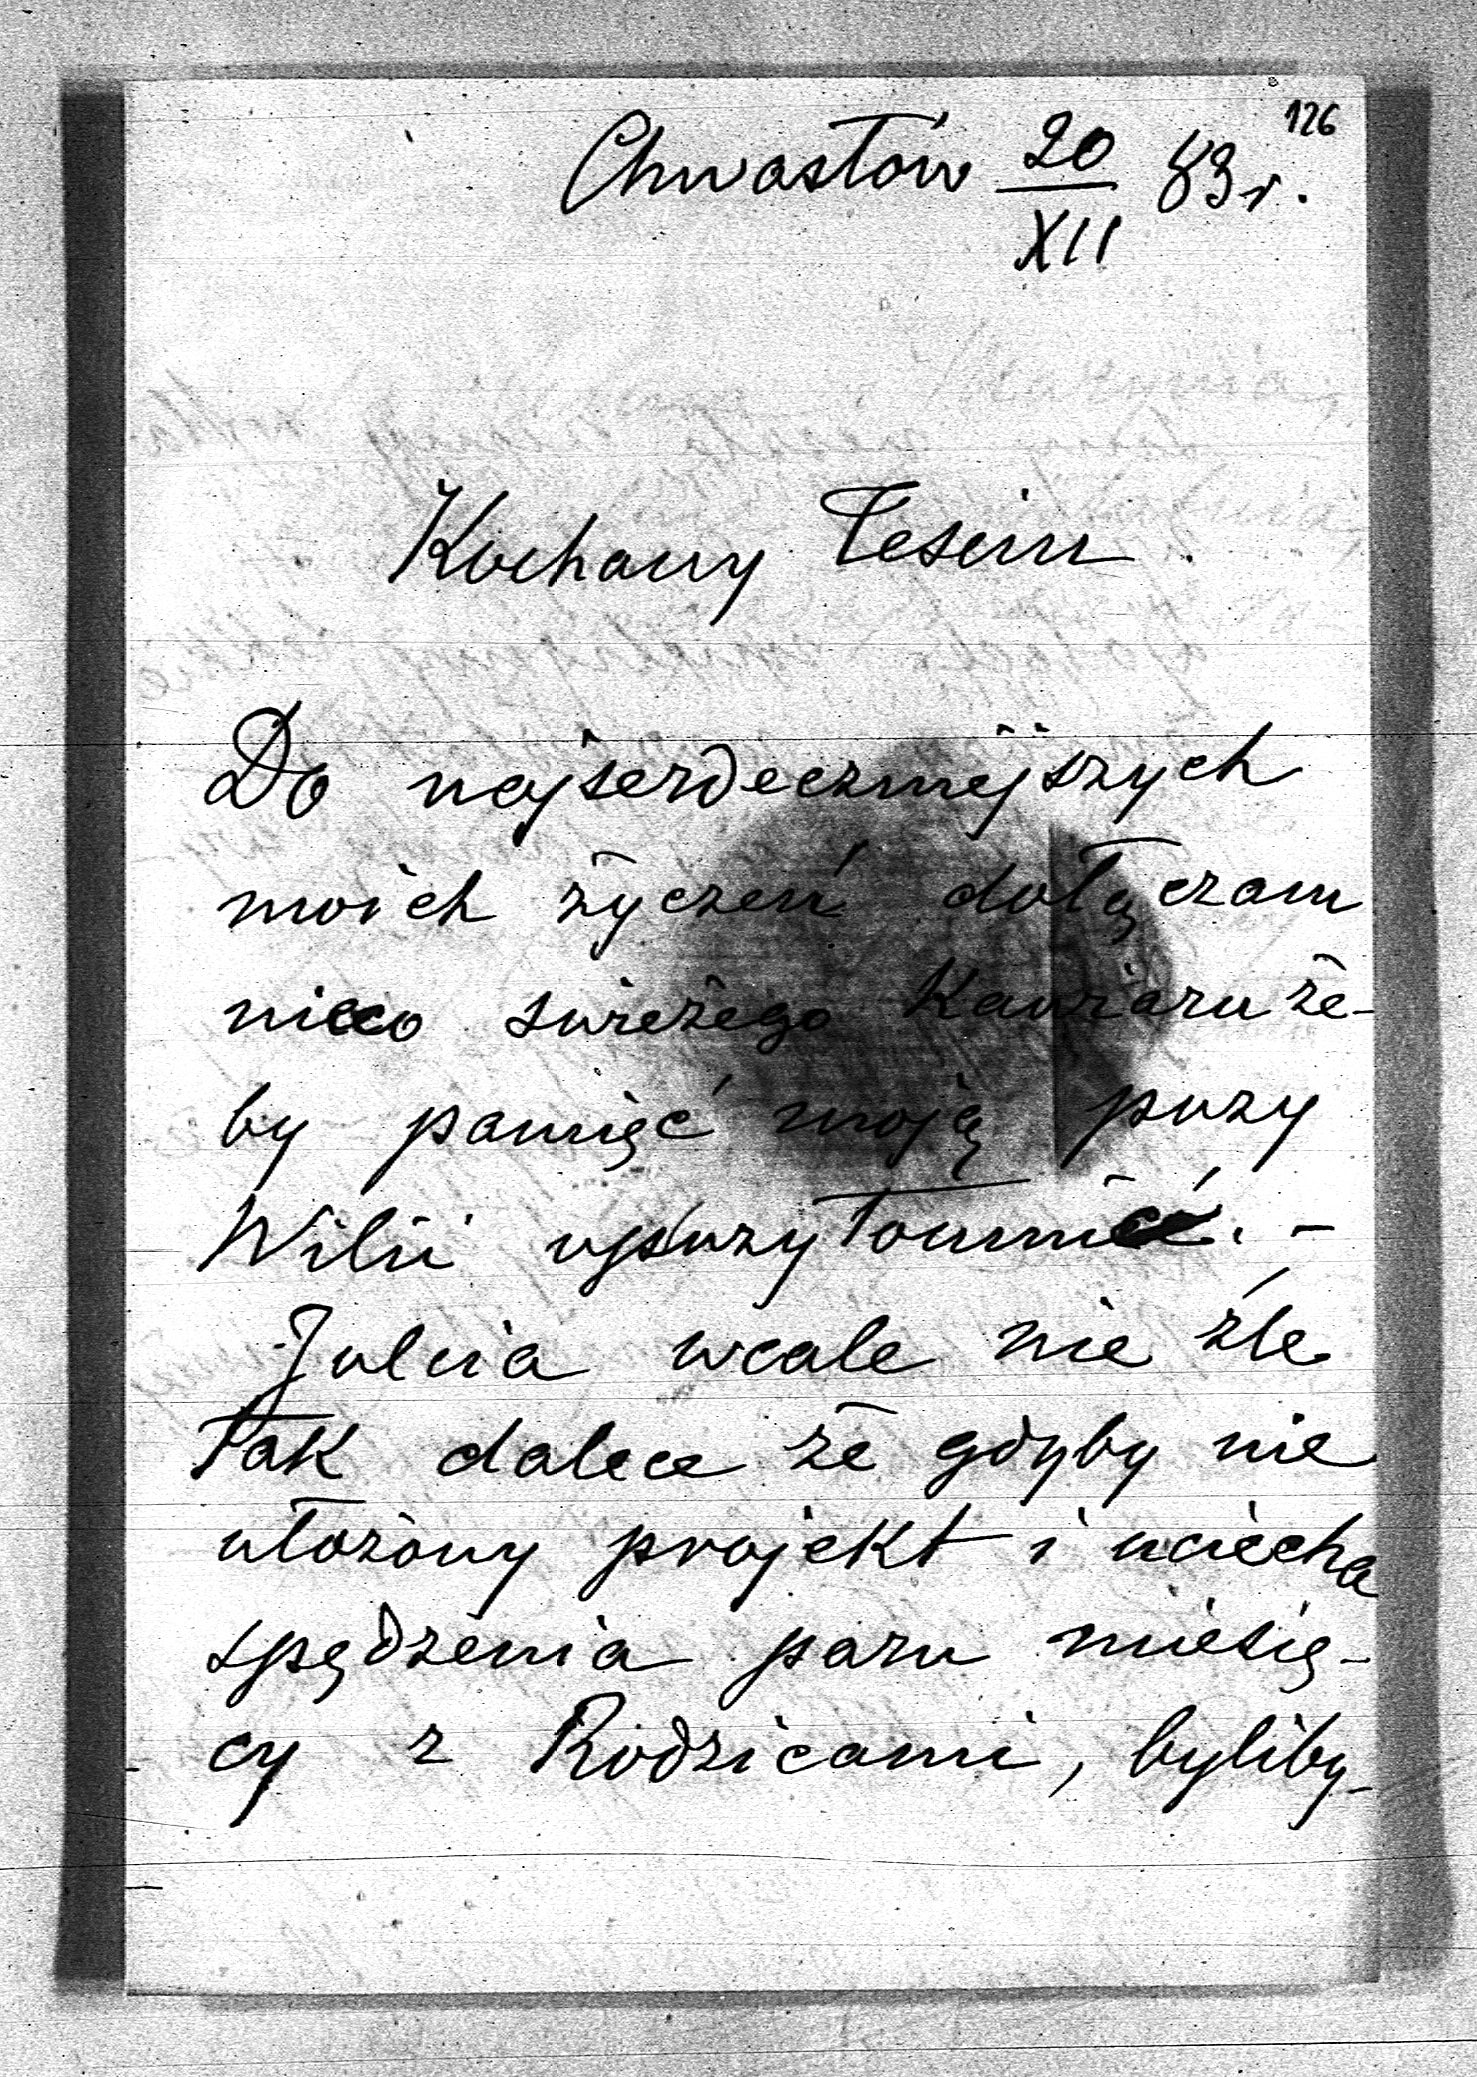 126
Chwastów 20/XII 83 r.
Kochany Teściu
Do najserdeczniejszych
moich życzeń dołączam
nieco swieżego Kawiaru że-
by pamięć moją przy
Wilii uprzytomnić. -
Julcia wcale nie źle
tak dalece że gdyby nie
ułożony projekt i uciecha
spędzenia paru miesię-
cy z Rodzicami, byliby-